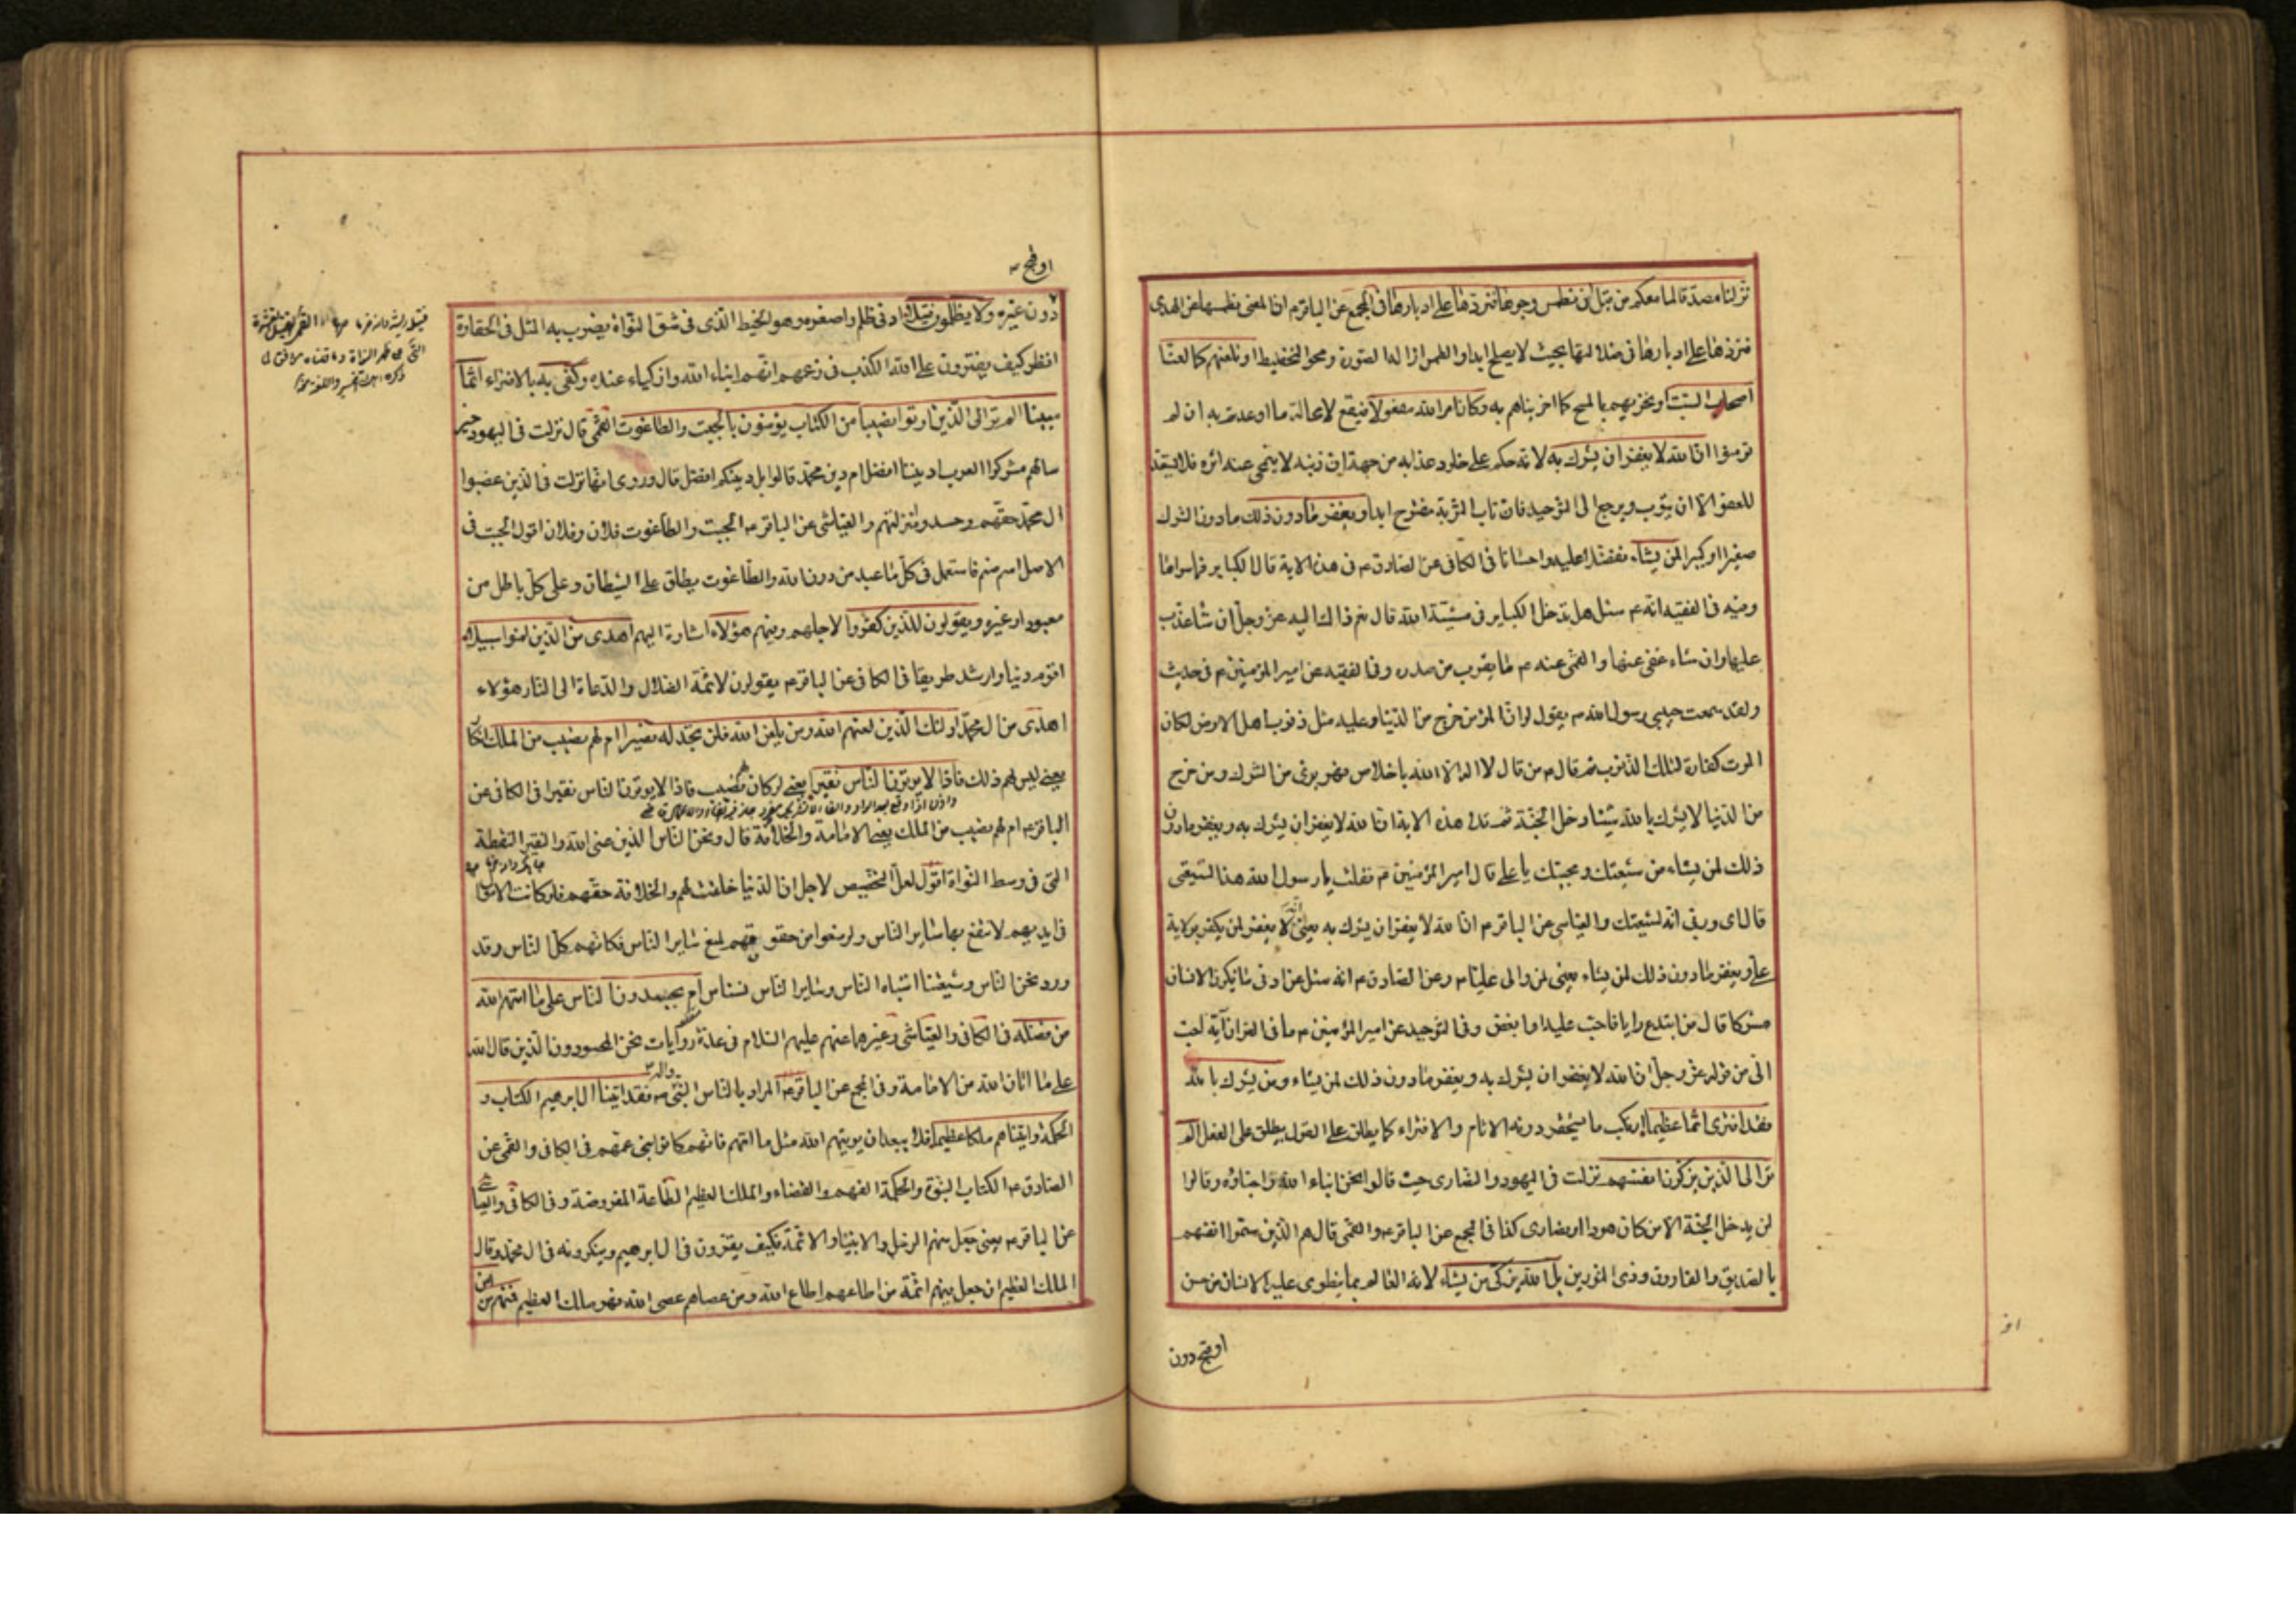 نزلنا مصدقا لما معكم من قبل ان نطمس وجوها فنردها على ادبارها في المجمع عن الباقر ع ان المعنى نطمسها عن الهدى
فنردها على ادبارها في ضلالتها بحيث لا يصلح ابدا والطمس ازالة الصورة ومحو التخطيط او نلعنهم كما لعنّا
اصحاب السّبت او نخزيهم بالمسخ كما اخزيناهم به وكان امر الله مفعولا فيقع لا محالة ما اوعدتم به ان لم
تؤمنوا ان الله لا يغفر ان يشرك به لانه حكم على خلود عذابه من جهة ان ذنبه لا ينمحي عنه اثره فلا يستعد
للعفو الا ان يتوب ويرجع الى التوحيد فان باب التوبة مفتوح ابدا ويغفر ما دون ذلك ما دون الشرك
صغيرا او كبيرا لمن يشاء تفضلا عليه واحسانا في الكافي عن الصادق ع في هذه الاية قال الكباير فما سواها
وفيه في الفقيه انه ع سئل هل تدخل الكباير في مشيّة الله قال نعم ذاك اليه عز وجل ان شاء عذب
عليها وان شاء عفى عنها والقمي عنه ع ما يقرب من صدره وفي الفقيه عن امير المؤمنين ع في حديث
ولقد سمعت حبيبي رسول الله ص يقول لو ان المؤمن خرج من الدنيا وعليه مثل ذنوب اهل الارض لكان
الموت كفارة لتلك الذنوب ثم قال ص من قال لا اله الا الله باخلاص فهو بريء من الشرك ومن خرج
من الدنيا لا يشرك بالله شيئا دخل الجنّة ثم تلا هذه الاية ان الله لا يغفر ان يشرك به ويغفر ما دون
ذلك لمن يشاء من شيعتك ومحبيك يا علي قال امير المؤمنين ع فقلت يا رسول الله هذا لشيعتي
قال اي وربي انه لشيعتك والعياشي عن الباقر ع ان الله لا يغفر ان يشرك به يعني انه لا يغفر لمن يكفر بولاية
علي ويغفر ما دون ذلك لمن يشاء يعني لمن والى عليا ع وعن الصادق ع انه سئل عن ادنى ما يكون الانسان
مشركا قال من ابتدع رايا فاحب عليه او ابغض وفي التوحيد عن امير المؤمنين ع ما في القران آية احب
الىّ من قوله عز وجل ان الله لا يغفر ان يشرك به ويغفر ما دون ذلك لمن يشاء ومن يشرك بالله
فقد افترى اثما عظيما ارتكب ما يستحقر دونه الاثام والافتراء كما يطلق على القول يطلق على الفعل الم
تر الى الذين يزكون انفسهم نزلت في اليهود والنصارى حيث قالوا نحن ابناء الله واحباؤه وقالوا
لن يدخل الجنّة الا من كان هودا او نصارى كذا في المجمع عن الباقر ع والقمي قال هم الذين سموا انفسهم
بالصديق والفاروق وذي النورين بل الله يزكي من يشاء لانه العالم بما ينطوي عليه الانسان من حسن
او قبح دون
او قبح
دون غيره ولا يظلمون فتيلا ادنى ظلم واصغره وهو الخيط الذي في شق النّواة يضرب به المثل في الحقارة
انظر كيف يفترون على الله الكذب في زعمهم انهم ابناء الله وازكياء عنده وكفى به بالافتراء اثما
مبينا الم تر الى الذين اوتوا نصيبا من الكتاب يؤمنون بالجبت والطاغوت القمّي قال نزلت في اليهود حين
سالهم مشركوا العرب اديننا افضل ام دين محمّد قالوا بل دينكم افضل قال وروي انها نزلت في الذين غصبوا
ال محمّد حقهم وحسدوا منزلتهم والعياشي عن الباقر ع الجبت والطاغوت فلان وفلان اقول الجبت في
الاصل اسم صنم فاستعمل في كلّ ما عبد من دون الله والطاغوت يطلق على الشيطان وعلى كلّ باطل من
معبود او غيره ويقولون للذين كفروا لاجلهم وفيهم هؤلاء اشارة اليهم اهدى من الذين امنوا سبيلا
اقوم دينا وارشد طريقا في الكافي عن الباقر ع يقولون لائمّة الضلال والدعاة الى النار هؤلاء
اهدى من ال محمّد اولئك الذين لعنهم الله ومن يلعن الله فلن تجد له نصيرا ام لهم نصيب من الملك انكار
يعني ليس لهم ذلك فاذا لا يؤتون النّاس نقيرا يعني لو كان لهم نصيب فاذا لا يؤتون الناس نقيرا في الكافي عن
الباقر ع ام لهم نصيب من الملك يعني الامامة والخلافة قال ونحن الناس الذين عنى الله والنقير النقطة
التي في وسط النّواة اقول لعل التخصيص لاجل ان الدنيا خلقت لهم والخلافة حقهم فلو كانت الاموال
في ايديهم لانتفع بها ساير الناس ولو منعوا من حقوقهم لمنع ساير الناس فكانهم كل الناس وقد
ورد نحن الناس وشيعتنا اشباه الناس وساير الناس نسناس ام يحسدون الناس على ما اتيهم الله
من فضله في الكافي والعياشي وغيرهما عنهم عليهم السلام في عدة روايات نحن المحسودون الذين قال الله
على ما اتانا الله من الامامة وفي المجمع عن الباقر ع المراد بالناس النبي ص واله فقد اتينا ال ابرهيم الكتاب و
الحكمة واتيناهم ملكا عظيما فلا يبعد ان يؤتيهم الله مثل ما اتيهم فانهم كانوا بني عمهم في الكافي والقمي عن
الصادق ع الكتاب النبوة والحكمة الفهم والقضاء والملك العظيم الطاعة المفروضة وفي الكافي والعياشي
عن الباقر ع يعني جعل منهم الرسل والانبياء والائمّة فكيف يقرون في ال ابرهيم وينكرونه في ال محمّد وقال
الملك العظيم ان جعل فيهم ائمّة من اطاعهم اطاع الله ومن عصاهم عصى الله فهو الملك العظيم فمنهم من امن